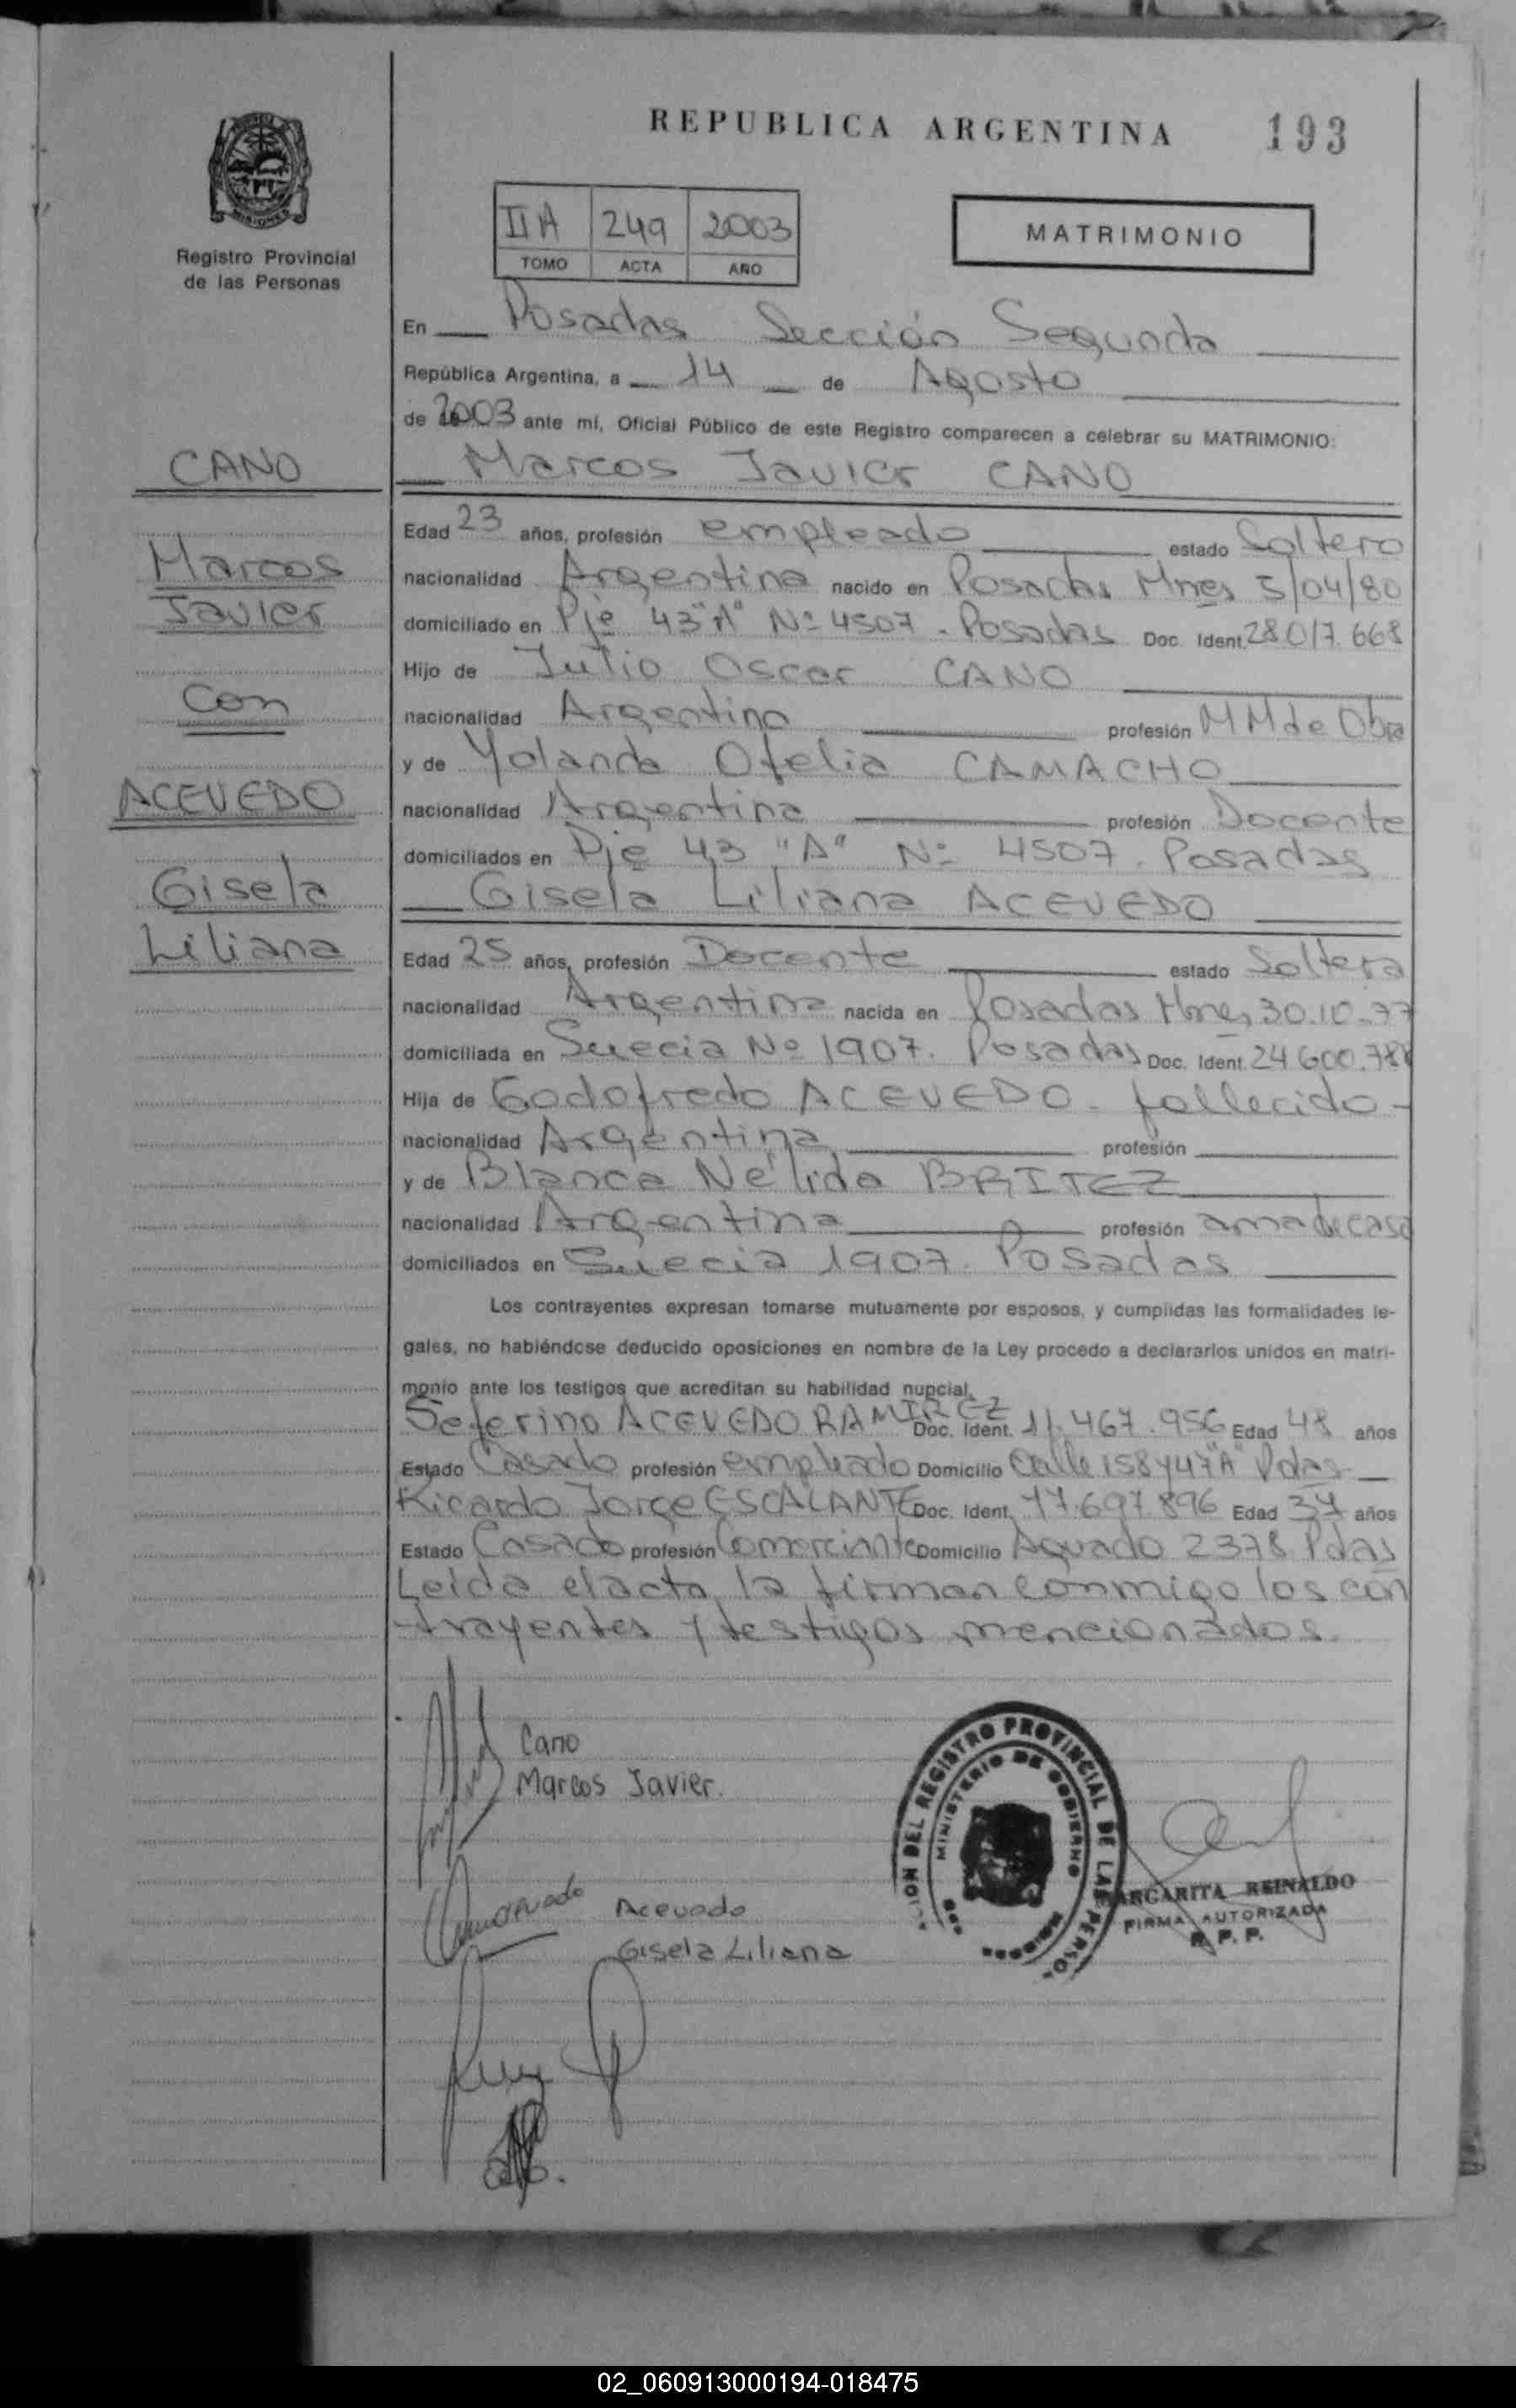 REPUBLICA ARGENTINA 193
MISIONES
Registro Provincial
de las Personas
IIA 249 2003
TOMO ACTA AÑO
MATRIMONIO
En Posadas Sección Segunda
República Argentina, a 14 de Agosto
de 2003 ante mí, Oficial Público de este Registro comparecen a celebrar su MATRIMONIO:
CANO
Marcos
Javier
Con
ACEVEDO
Gisela
Liliana
Marcos Javier CANO
Edad 23 años, profesión empleado estado Soltero
nacionalidad Argentina nacido en Posadas Mnes 5/04/80
domiciliado en Pje 43 "A" Nº 4507 - Posadas Doc. Ident. 28.017.668
Hijo de Julio Oscar CANO
nacionalidad Argentina profesión MM de Obra
y de Yolanda Ofelia CAMACHO
nacionalidad Argentina profesión Docente
domiciliados en Pje 43 "A" Nº 4507. Posadas
Gisela Liliana ACEVEDO
Edad 25 años, profesión Docente estado Soltera
nacionalidad Argentina nacida en Posadas Mnes 30.10.77
domiciliada en Suecia Nº 1907. Posadas Doc. Ident.
Hija de Godofredo ACEVEDO - fallecido -
nacionalidad Argentina profesión
y de Blanca Nélida BRITEZ
nacionalidad Argentina profesión ama de casa
domiciliados en Suecia 1907. Posadas
Los contrayentes expresan tomarse mutuamente por esposos, y cumplidas las formalidades le-
gales, no habiéndose deducido oposiciones en nombre de la Ley procedo a declararlos unidos en matri-
monio ante los testigos que acreditan su habilidad nupcial.
Seferino ACEVEDO RAMIREZ Doc. Ident. 11.467.956 Edad 48 años
Estado Casado profesión empleado Domicilio Calle 158 y 47 "A" Pdas
Ricardo Jorge ESCALANTE Doc. Ident. 17.697.896 Edad 37 años
Estado Casado profesión Comerciante Domicilio Aguado 2378 Pdas
Leida el acta la firman conmigo los con
-trayentes y testigos mencionados.
Cano
Marcos Javier.
Acevedo
Gisela Liliana
DEL REGISTRO PROVINCIAL DE LAS PERSO
MINISTERIO DE GOBIERNO
MARGARITA REINALDO
FIRMA AUTORIZADA
R. P. P.
02_060913000194-018475